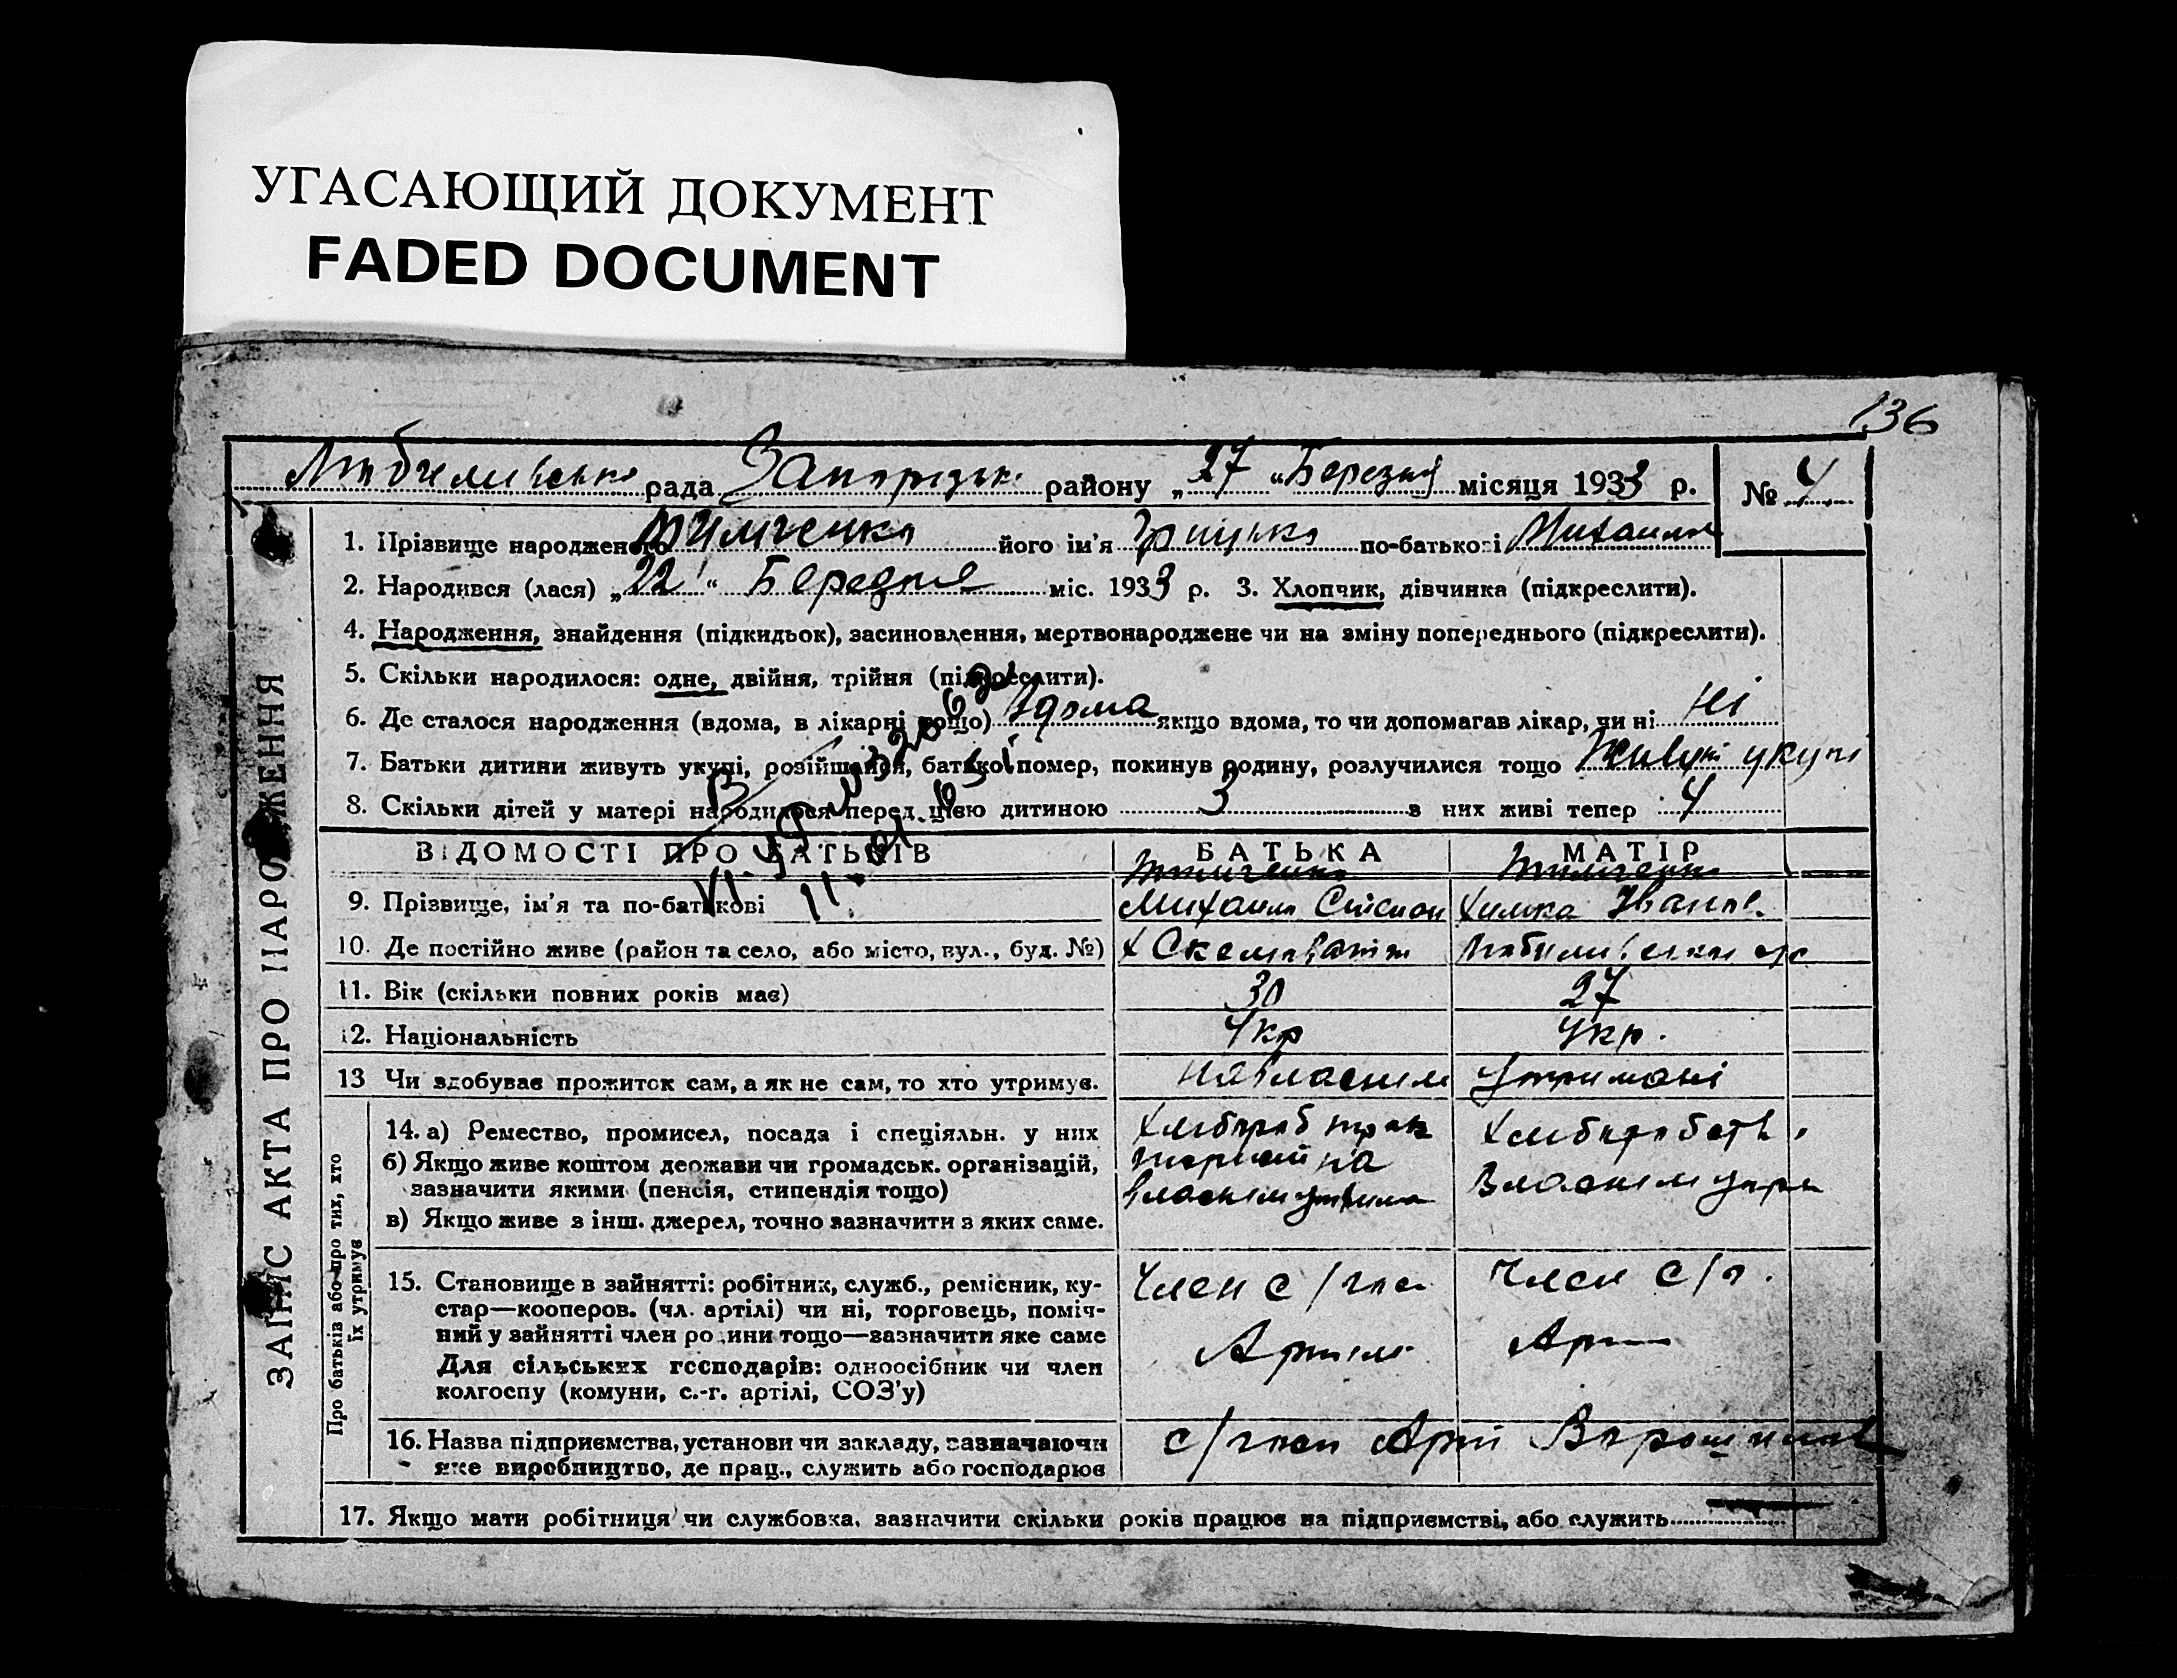 УГАСАЮЩИЙ ДОКУМЕНТ
FADED DOCUMENT
136
рада району „27“ Березня місяця 1933 р. № 4
ЗАПИС АКТА ПРО НАРОДЖЕННЯ
1. Прізвище народженого Тимченко його ім'я Грицько по-батькові Михайло
2. Народився (лася) „22“ Березня міс. 1933 р. 3. Хлопчик, дівчинка (підкреслити).
4. Народження, знайдення (підкидьок), засиновлення, мертвонароджене чи на зміну попереднього (підкреслити).
5. Скільки народилося: одне, двійня, трійня (підкреслити).
6. Де сталося народження (вдома, в лікарні тощо) Вдома якщо вдома, то чи допомагав лікар, чи ні Ні
7. Батьки дитини живуть укупі, розійшлися, батько помер, покинув родину, розлучилися тощо Живуть укупі
8. Скільки дітей у матері народилося перед цією дитиною 3 з них живі тепер 4
ВІДОМОСТІ ПРО БАТЬКІВ БАТЬКА МАТІР
Тимченко Тимченко
9. Прізвище, ім'я та по-батькові Михайло Химка Іванов.
10. Де постійно живе (район та село, або місто, вул., буд. №)
11. Вік (скільки повних років має) 30 27
12. Національність Укр Укр.
13 Чи здобуває прожиток сам, а як не сам, то хто утримує. На власнім утримані
Про батьків або про тих, хто їх утримує
14. а) Ремество, промисел, посада і спеціяльн. у них
б) Якщо живе коштом держави чи громадськ. організацій,
зазначити якими (пенсія, стипендія тощо)
в) Якщо живе з інш. джерел, точно зазначити з яких саме.
15. Становище в зайнятті: робітник, служб., ремісник, ку-
стар—кооперов. (чл. артілі) чи ні, торговець, поміч-
ний у зайнятті член родини тощо—зазначити яке саме
Для сільських господарів: одноосібник чи член
колгоспу (комуни, с.-г. артілі, СОЗ'у)
Член с/госп Член с/г.
Артилі Арт
16. Назва підприємства, установи чи закладу, зазначаючи
яке виробництво, де прац., служить або господарює
с/госп Арт Ворошилов
17. Якщо мати робітниця чи службовка, зазначити скільки років працює на підприємстві, або служить